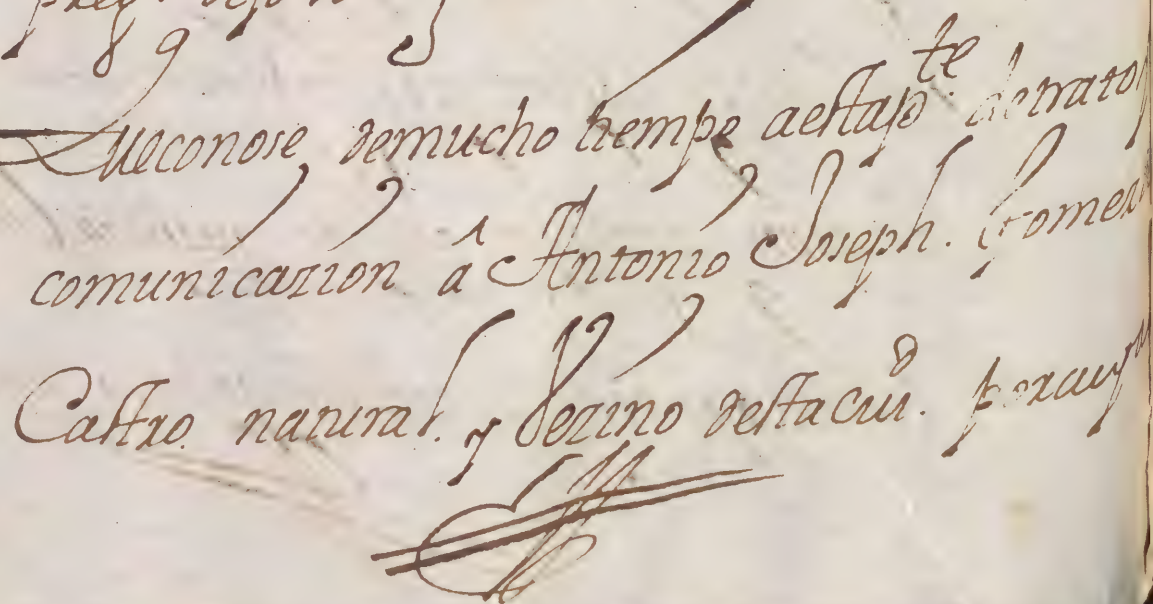 Queconose demucho tiempo aestap.te detrato
comunicazion â Antonio Joseph. Gomez
Castro natural. y Vezino destaciu.d porcuya